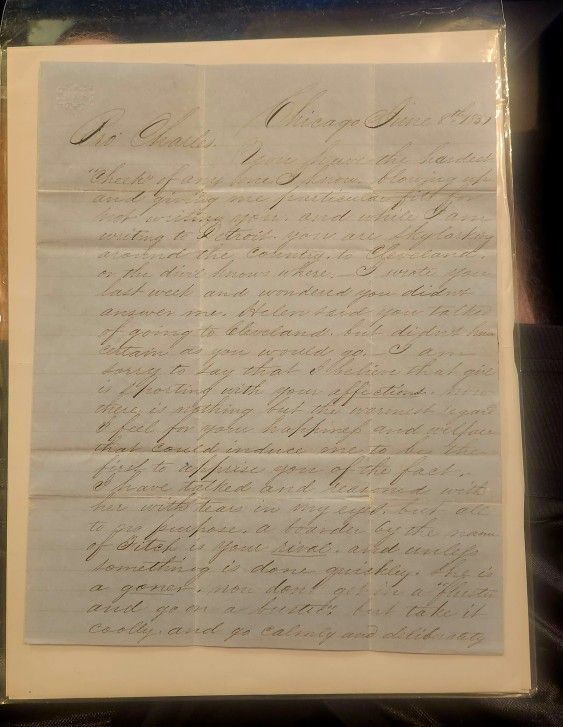 Chicago June 8th 1861
Bro Charles.
You have the hardest
"Cheek" of any one I know. blowing up
and giving me particular fits for
not writing you. and while I am
writing to Detroit you are skylarking
around the Country. to Cleveland.
or the devil knows where. I wrote you
last week and wondered you didnt
answer me. Helen said you talked
of going to Cleveland. but didnt know
certain as you would go. I am
sorry to say that I believe that girl
is sporting with your affections. now
there is nothing but the warmest regard
I feel for your happiness and welfare
that could induce me to be the
first to apprise you of the fact.
I have talked and reasoned with
her with tears in my eyes. but all
to no purpose. a boarder by the name
of Fitch is your rival. and unless
something is done quickly. she is
a goner. now dont get in a
and go on a buster". but take it
coolly. and go calmly and deliberately